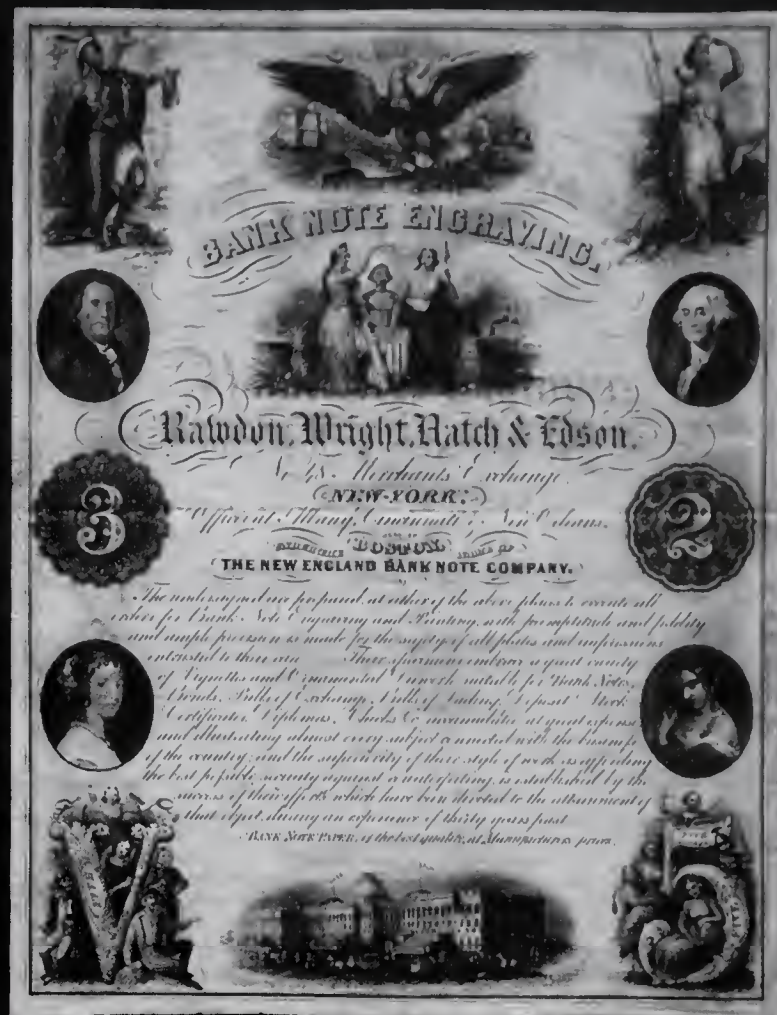 BANK NOTE ENGRAVING.
Rawdon, Wright, Hatch & Edson.
No. 48, Merchants Exchange
NEW-YORK.
Offices at Albany, Cincinnati & New Orleans.
BOSTON,
THE NEW ENGLAND BANK NOTE COMPANY.
3
2
The undersigned are prepared, at either of the above places to execute all
orders for Bank Note Engraving and Printing, with promptitude and fidelity
and ample provision is made for the safety of all plates and impressions
entrusted to their care. Their specimens embrace a great variety
of Vignettes and Ornamental Dies work suitable for Bank Notes,
Bonds, Bills of Exchange, Bills of Lading, Deposit & Stock
Certificates, Diplomas, Checks &c. accumulated at great expense
and illustrating almost every subject connected with the business
of the country; and the superiority of their style of work as affording
the best possible security against counterfeiting, is established by the
success of their efforts which have been devoted to the attainment of
that object, during an experience of thirty years past
BANK NOTE PAPER, of the best quality, at Manufacturers prices.
V
5